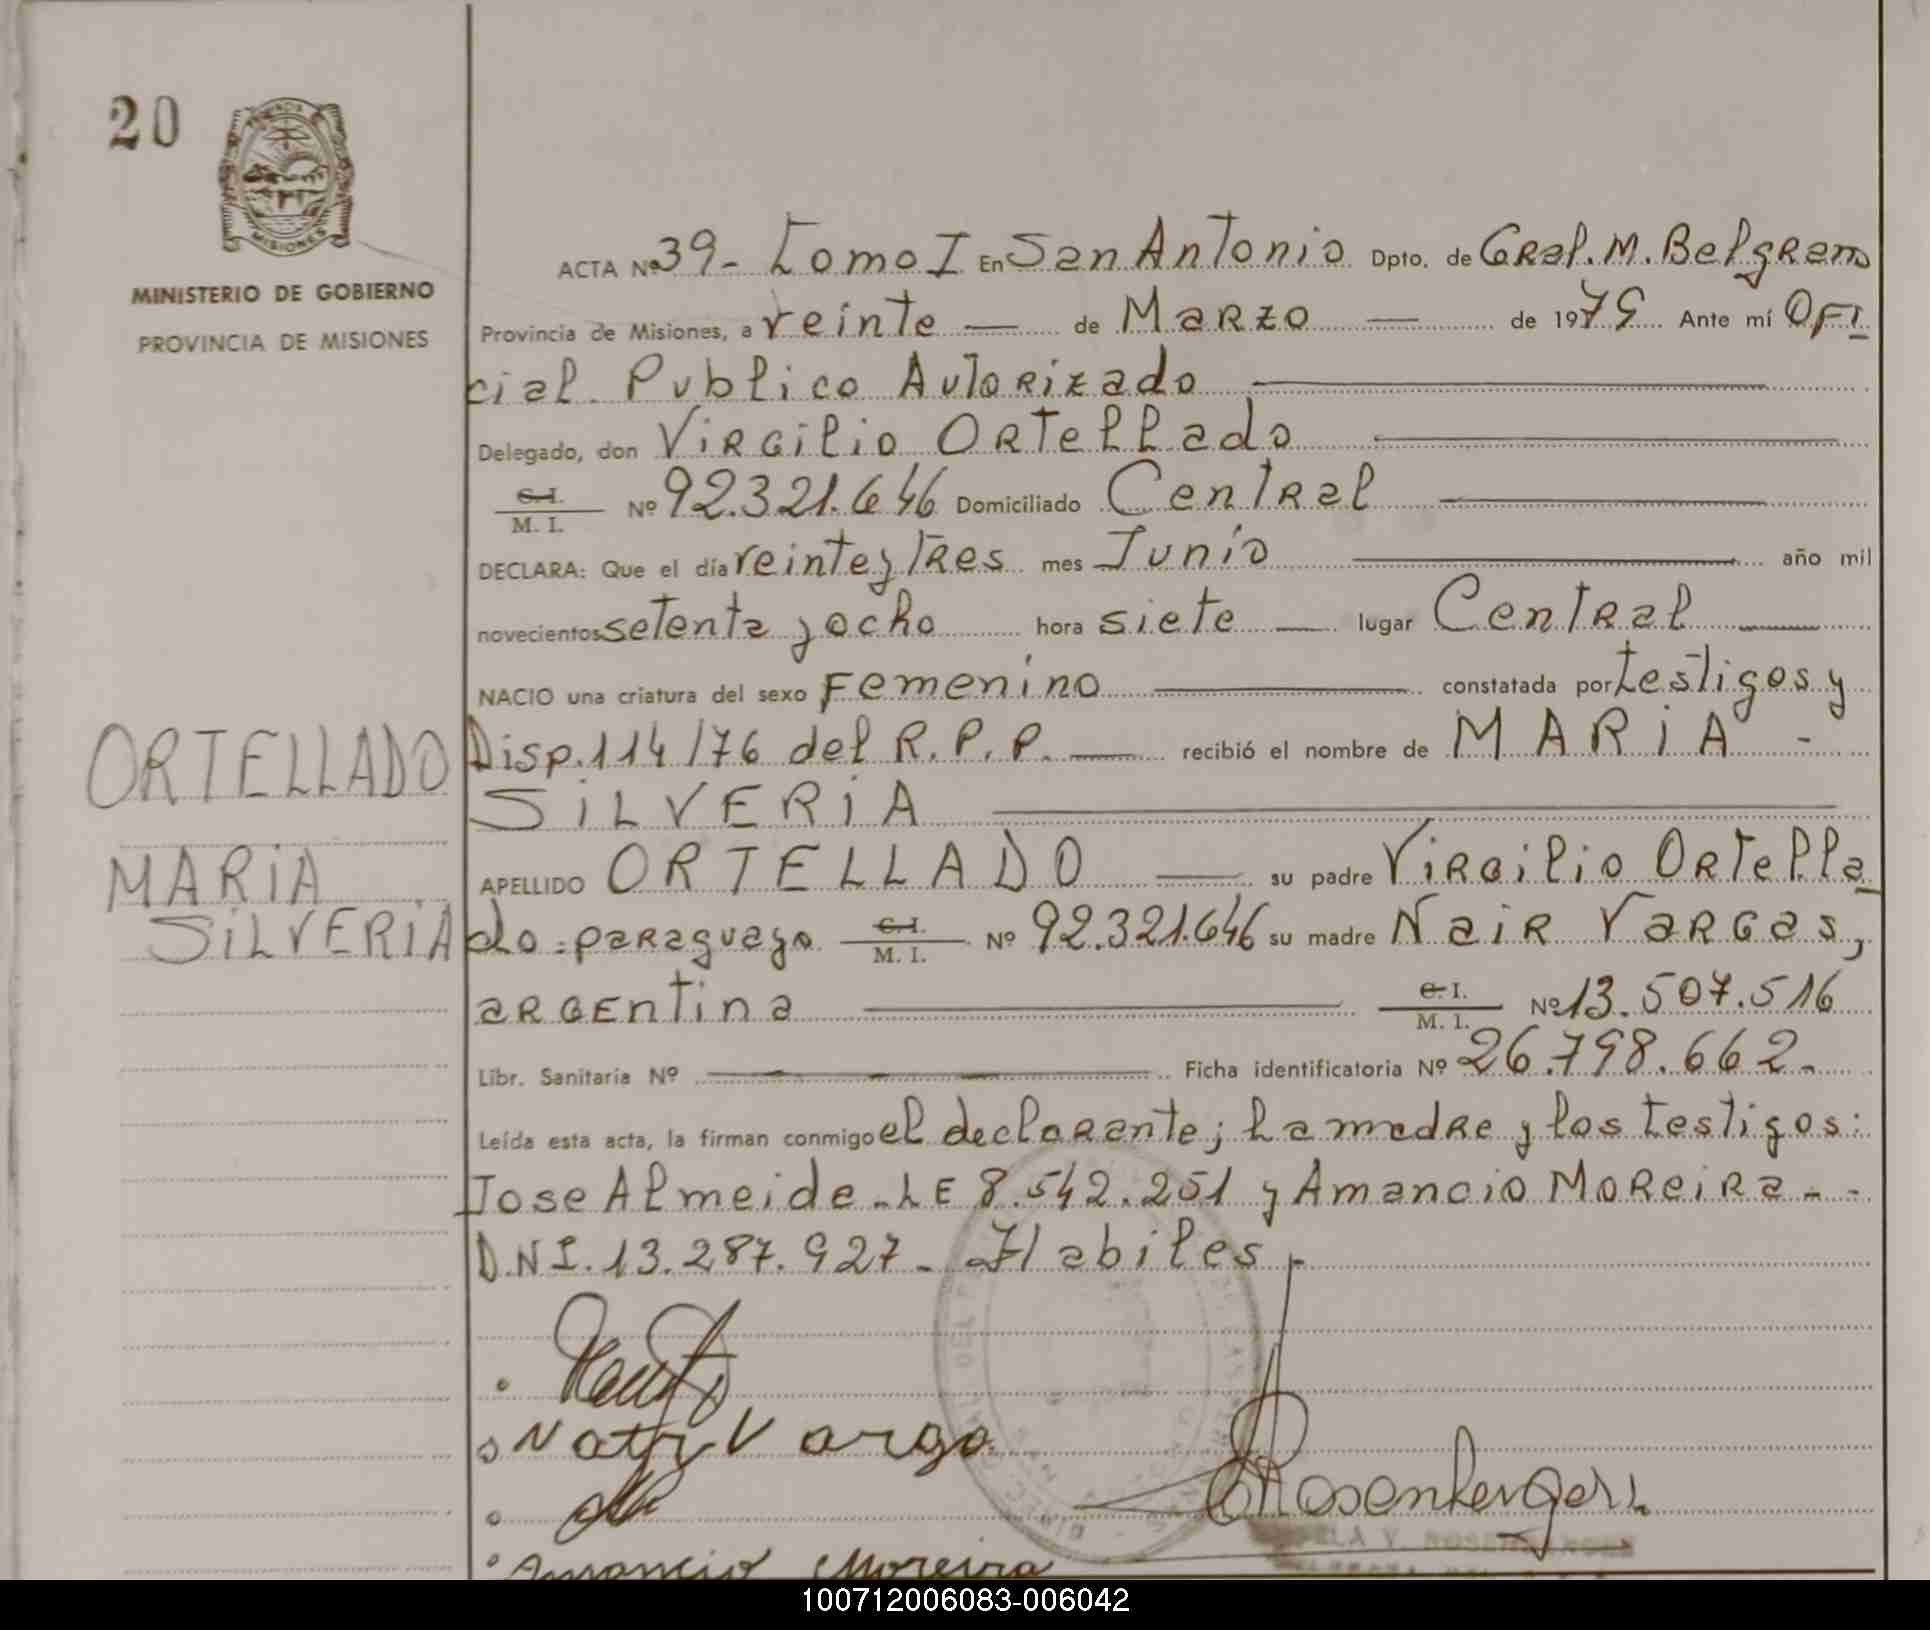 20
MISIONES
MINISTERIO DE GOBIERNO
PROVINCIA DE MISIONES
ACTA Nº 39- Tomo I En San Antonio Dpto. de GRal. M. Belgrano
Provincia de Misiones, a veinte — de MARZO — de 1979 Ante mí OFI
cial Publico AutoRizado
Delegado, don ViRGilio ORTellado
C.I. / M. I. Nº 92.321.646 Domiciliado CentRal
DECLARA: Que el día veinte y tRes mes Junio año mil
novecientos setenta y ocho hora siete — lugar CentRal
NACIO una criatura del sexo Femenino constatada por testigos y
Disp. 114/76 del R.P.P. — recibió el nombre de MARiA -
SiLVERiA
APELLIDO ORTELLADO — su padre ViRGilio ORTella
do = paRaguayo C.I. / M. I. Nº 92.321.646 su madre NaiR VaRGas,
aRGEntina C.I. / M. I. Nº 13.507.516
Libr. Sanitaria Nº — Ficha identificatoria Nº 26.798.662.-
Leída esta acta, la firman conmigo el declaRante; La madRe y los testigos:
Jose Almeida - LE 8.542.251 y Amancio MoReiRa - -
D.N.I. 13.287.927 - Habiles -
ORTELLADO
MARiA
SiLVERiA
Amancio Moreira
100712006083-006042